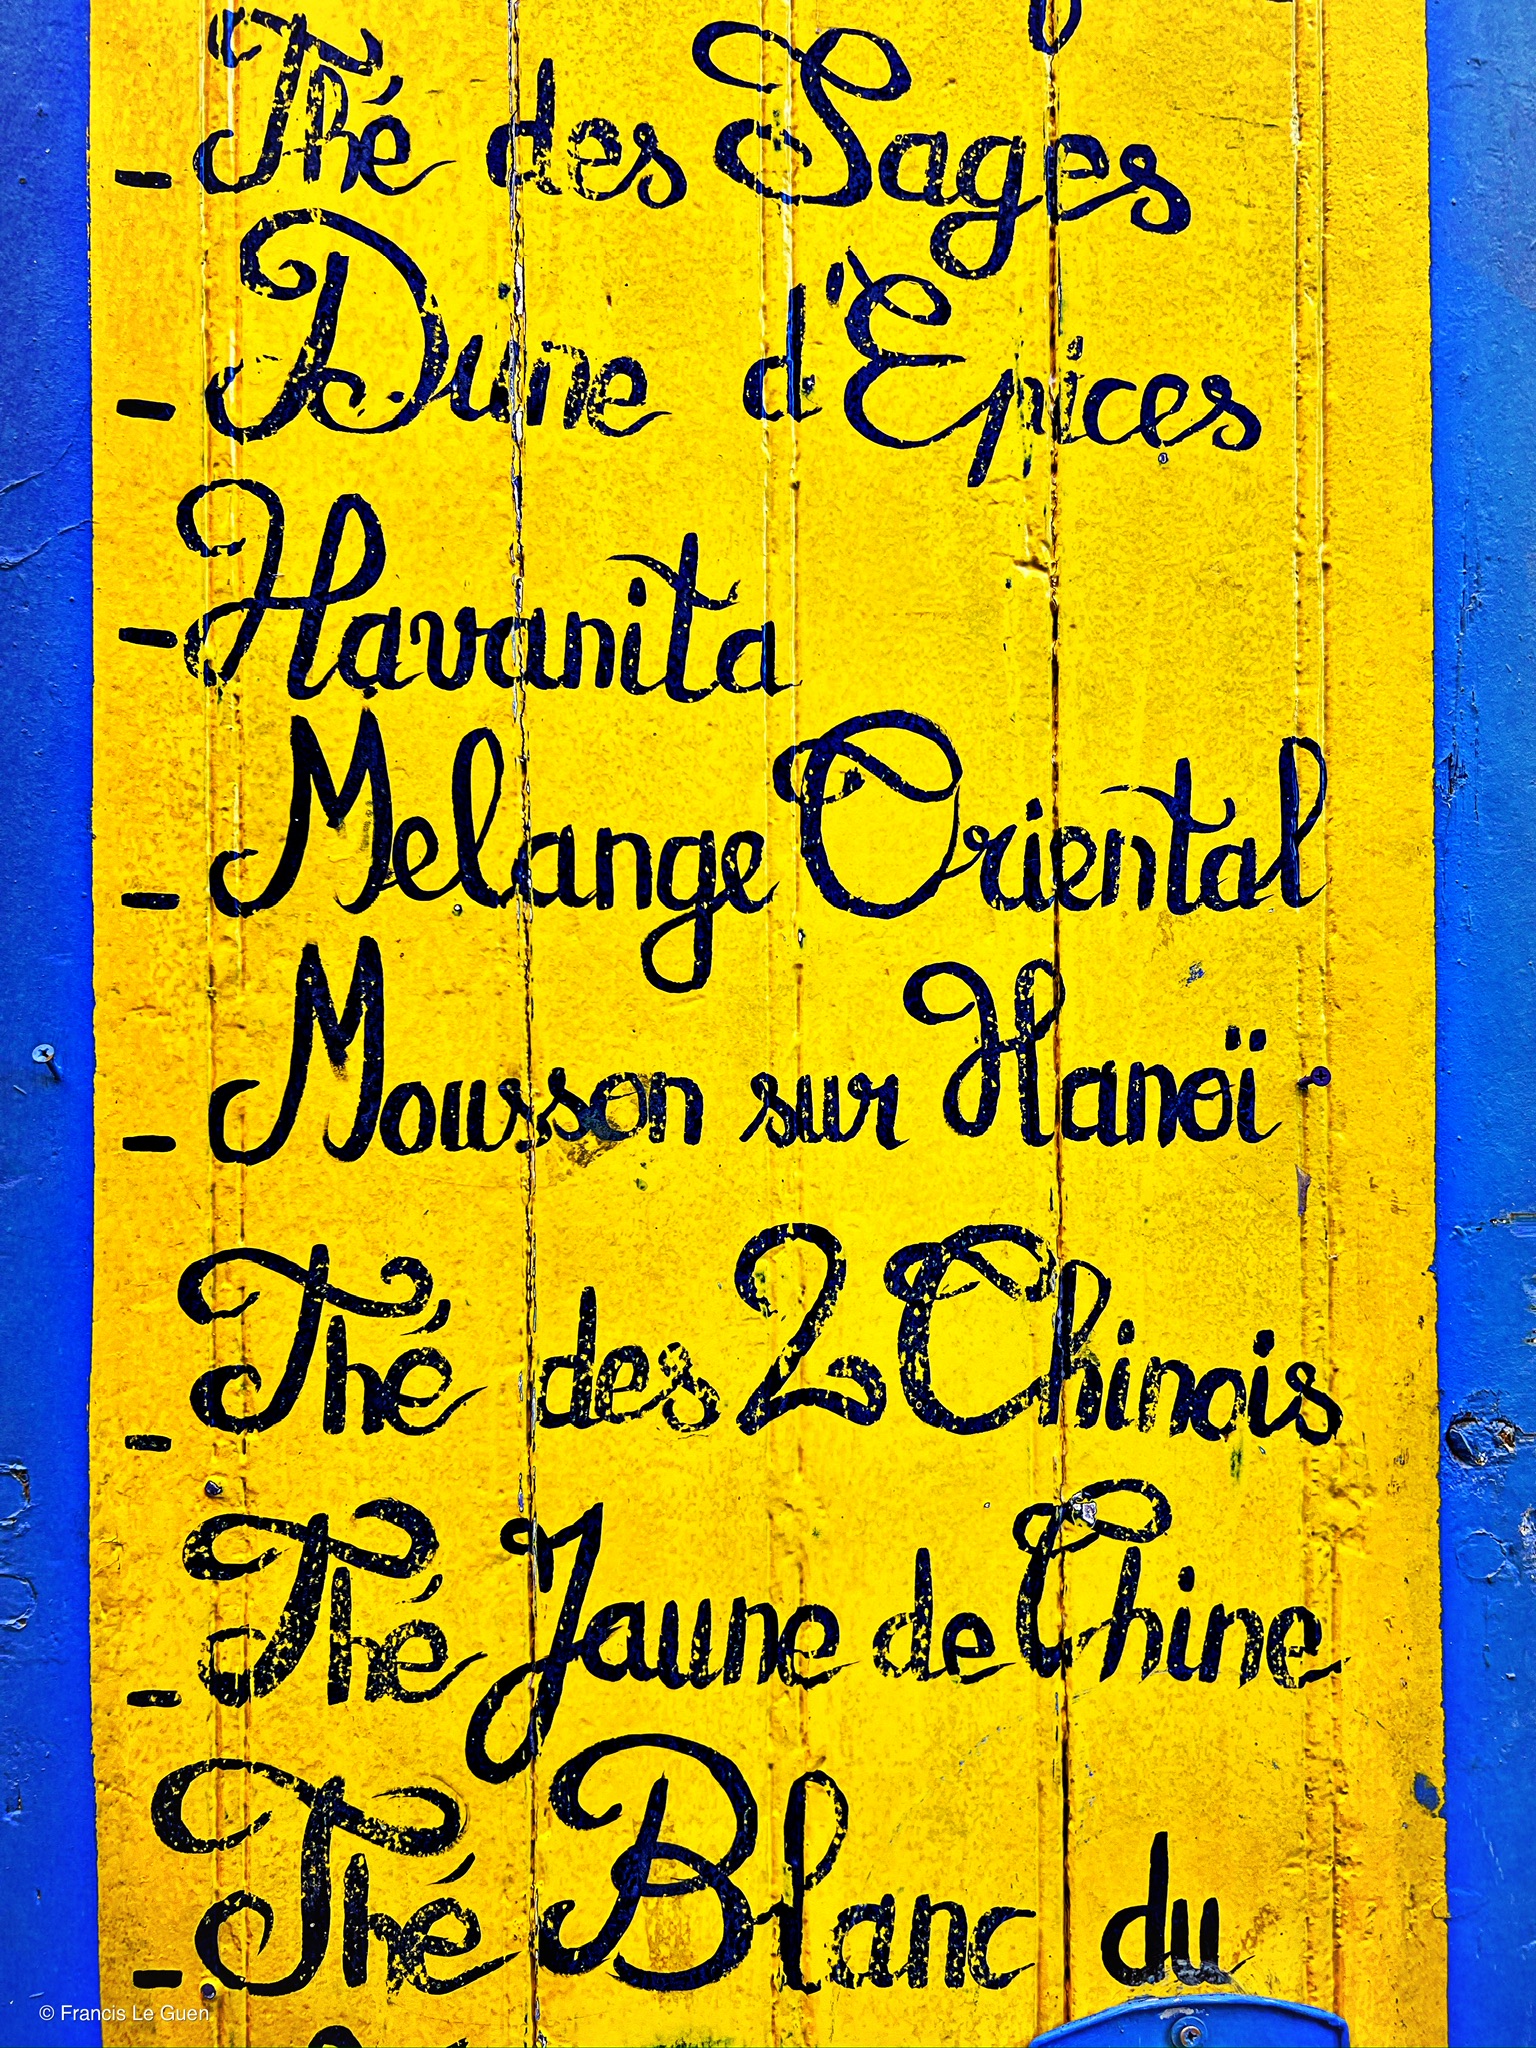 - Thé des Sages
- Dune d'Epices
- Havanita
- Melange Oriental
- Mousson sur Hanoï
- Thé des 2 Chinois
- Thé Jaune de Chine
- Thé Blanc du
© Francis Le Guen